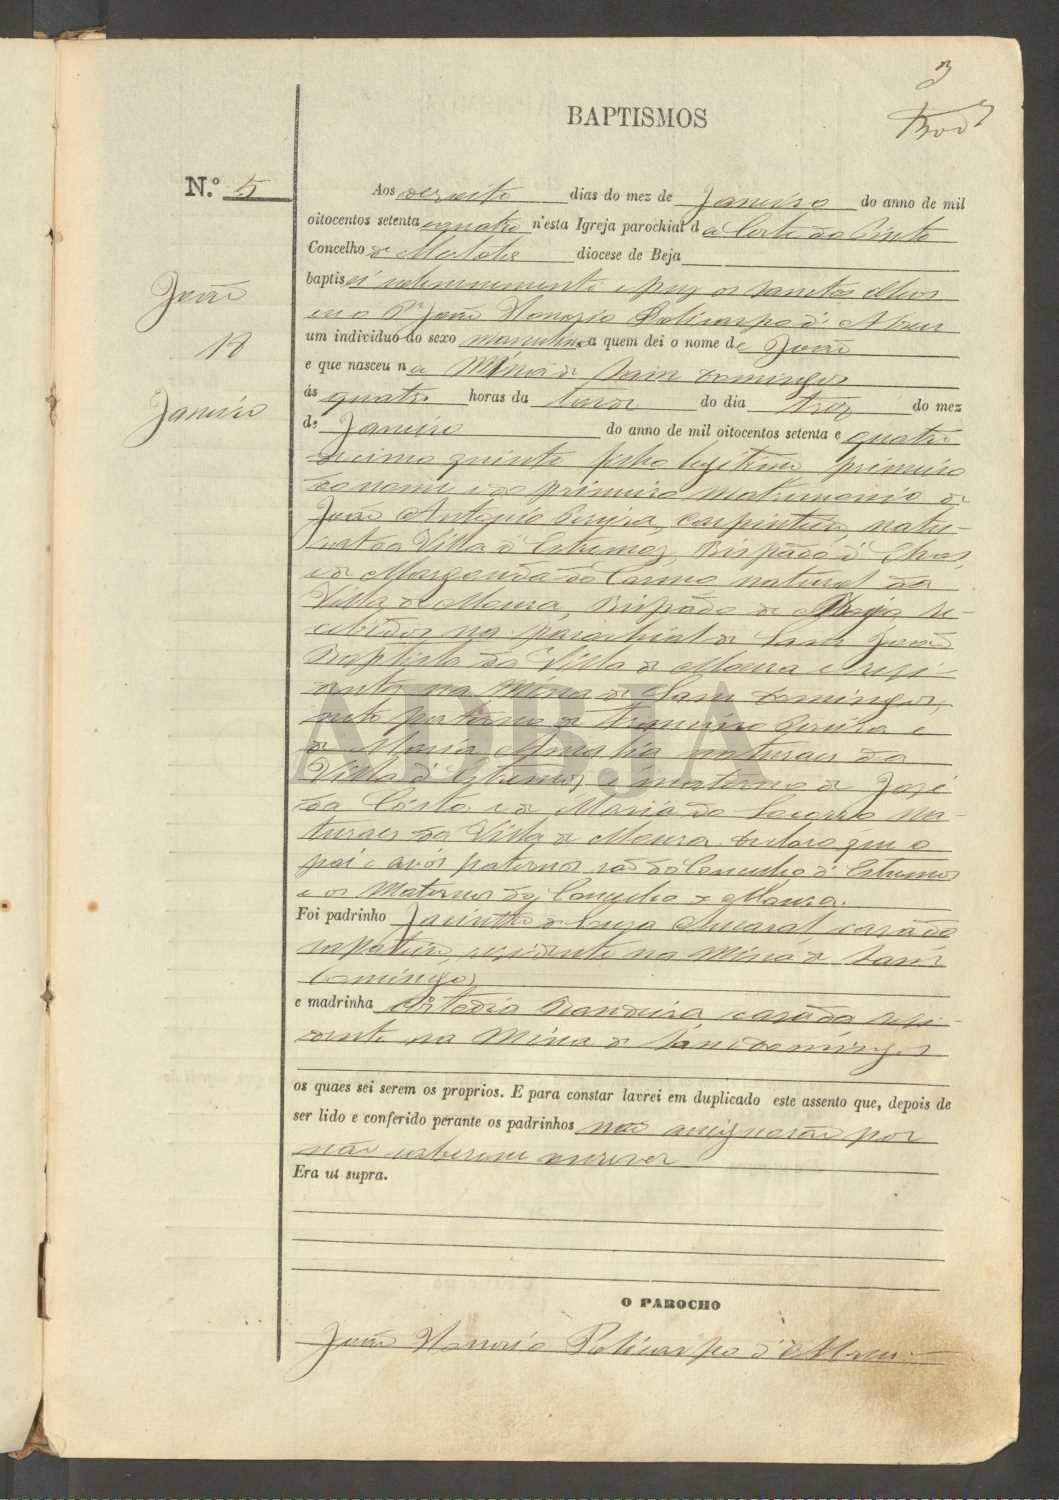 3
BAPTISMOS
N.º 5
João
18
Janeiro
Aos dezoito dias do mez de Janeiro do anno de mil
oitocentos setenta e quatro n'esta Igreja parochial da Corte do Pinto
Concelho de Mertola diocese de Beja
baptisei solemnemente e puz os santos oleos
eu o P.e João Honorio Policarpo d'Abreu
um individuo do sexo masculino a quem dei o nome de João
e que nasceu na Mina de Sam Domingos
ás quatro horas da tarde do dia trez do mez
de Janeiro do anno de mil oitocentos setenta e quatro
decimo quinto filho legitimo primeiro
do nome e do primeiro matrimonio de
João Antonio Pereira, carpinteiro, natu-
ral da Villa d'Estremoz, Bispado d'Elvas,
e de Margarida do Carmo natural da
Villa de Moura, Bispado de Beja, re-
cebidos na parochial de Sam João
Baptista da Villa de Moura e resi-
dentes na Mina de Sam Domingos,
neto paterno de Pereira e
de Maria Amalia naturaes da
Villa d'Estremoz, e materno de José
da Costa e de Maria do Socorro na-
turaes da Villa de Moura. Declaro que o
pai e avós paternos são do Concelho d'Estremoz
e os Maternos do Concelho de Moura.
Foi padrinho Jacintho de Souza Amaral casado
sapateiro, residente na Mina de Sam
Domingos
e madrinha Custodia Bandeira casada resi-
dente na Mina de Sam Domingos
os quaes sei serem os proprios. E para constar lavrei em duplicado este assento que, depois de
ser lido e conferido perante os padrinhos não assignarão por
não saberem escrever
Era ut supra.
O PAROCHO
João Honorio Policarpo d'Abreu
ADBJA